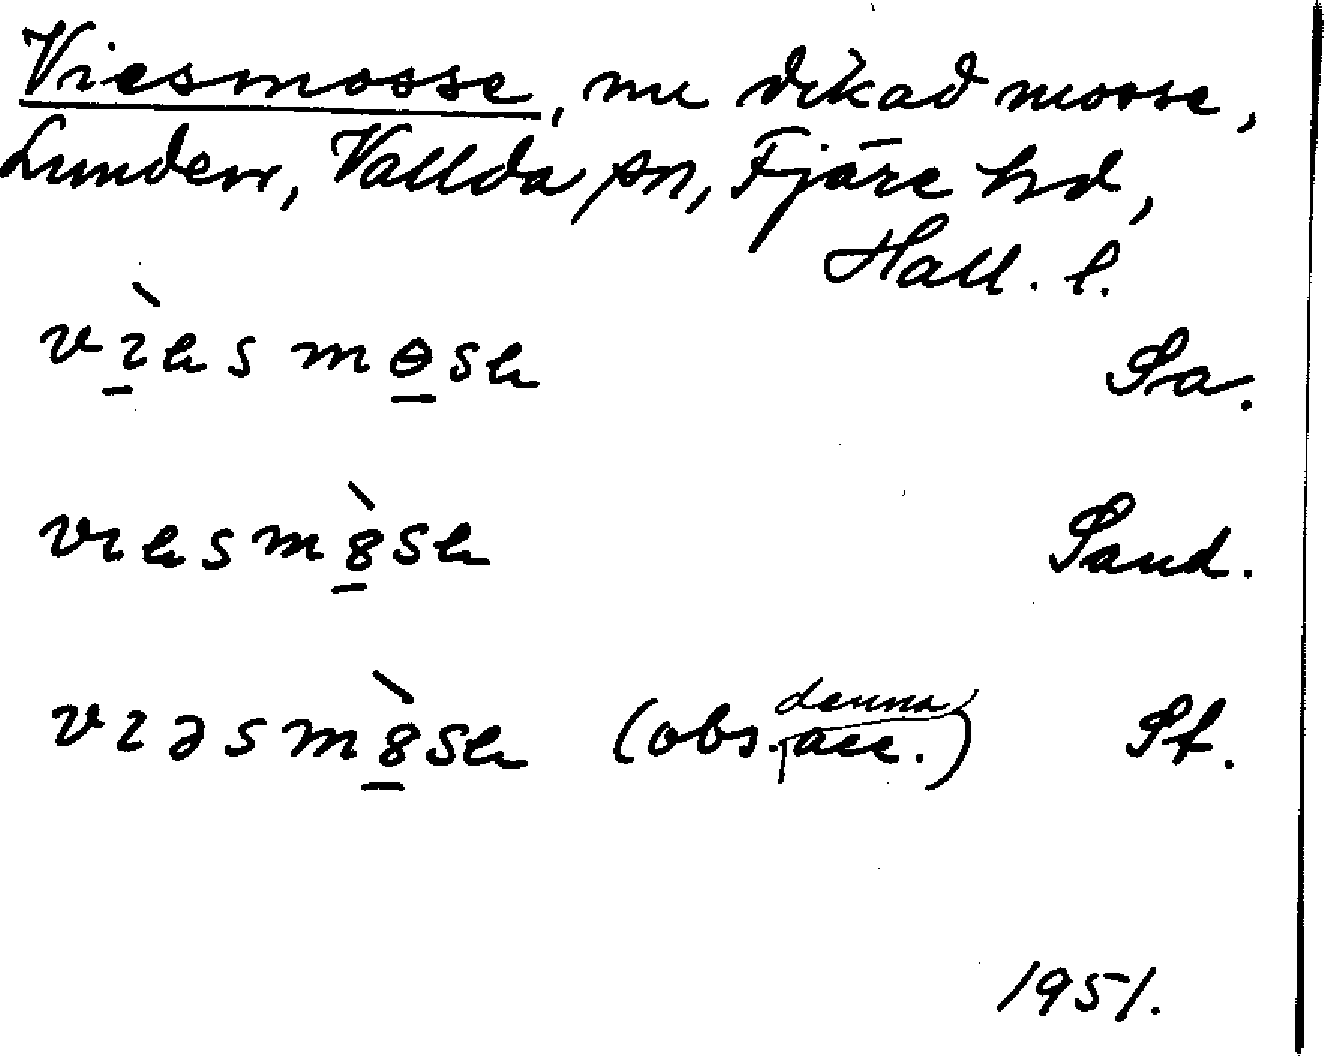 Viesmosse, nu dikad mosse,
Lunden, Vallda sn, Fjäre hd,
Hall. l.
vɪ̀es mɵse Sa.
vɪesm8̀se Sand.
vɪəsm8̀se (obs. denna acc.) St.
1951.